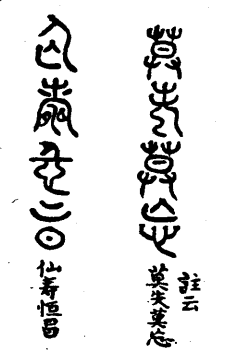 莫失莫忘
註云
莫失莫忘
仙壽恆昌
仙寿恒昌